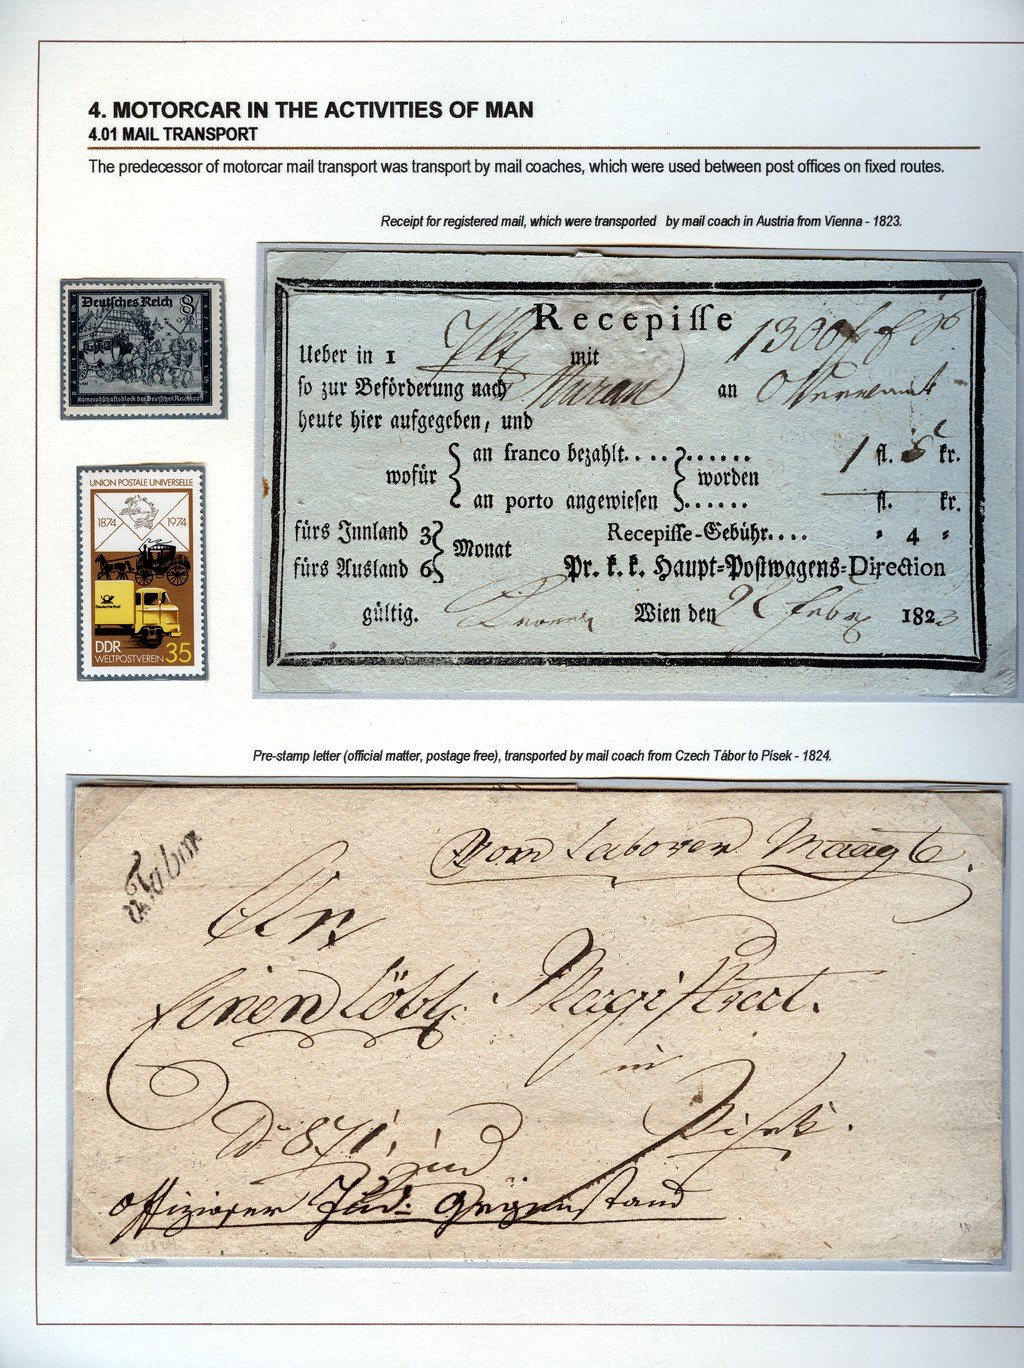 4. MOTORCAR IN THE ACTIVITIES OF MAN
4.01 MAIL TRANSPORT
The predecessor of motorcar mail transport was transport by mail coaches, which were used between post offices on fixed routes.
Receipt for registered mail, which were transported by mail coach in Austria from Vienna - 1823.
Deutsches Reich 8
Kameradschaftsblock der Deutschen Reichspost
UNION POSTALE UNIVERSELLE
1874 1974
Deutsche Post
DDR
WELTPOSTVEREIN 35
Recepiſſe
Ueber in 1 mit 1300 f
ſo zur Beförderung nach Muran an
heute hier aufgegeben, und
wofür { an franco bezahlt.... } ...... worden 1 fl. 8 kr.
an porto angewieſen } ...... fl. kr.
fürs Innland 3 } Monat Recepiſſe-Gebühr.... " 4 "
fürs Ausland 6 } Pr. k. k. Haupt-Poſtwagens-Direction
gültig. Wien den 2 Febr 1823
Pre-stamp letter (official matter, postage free), transported by mail coach from Czech Tábor to Písek - 1824.
Tabor
Vom Taborer Maagt
An
Einen Löbl: Magiſtrat.
in
Piſek.
871
Gegenſtand